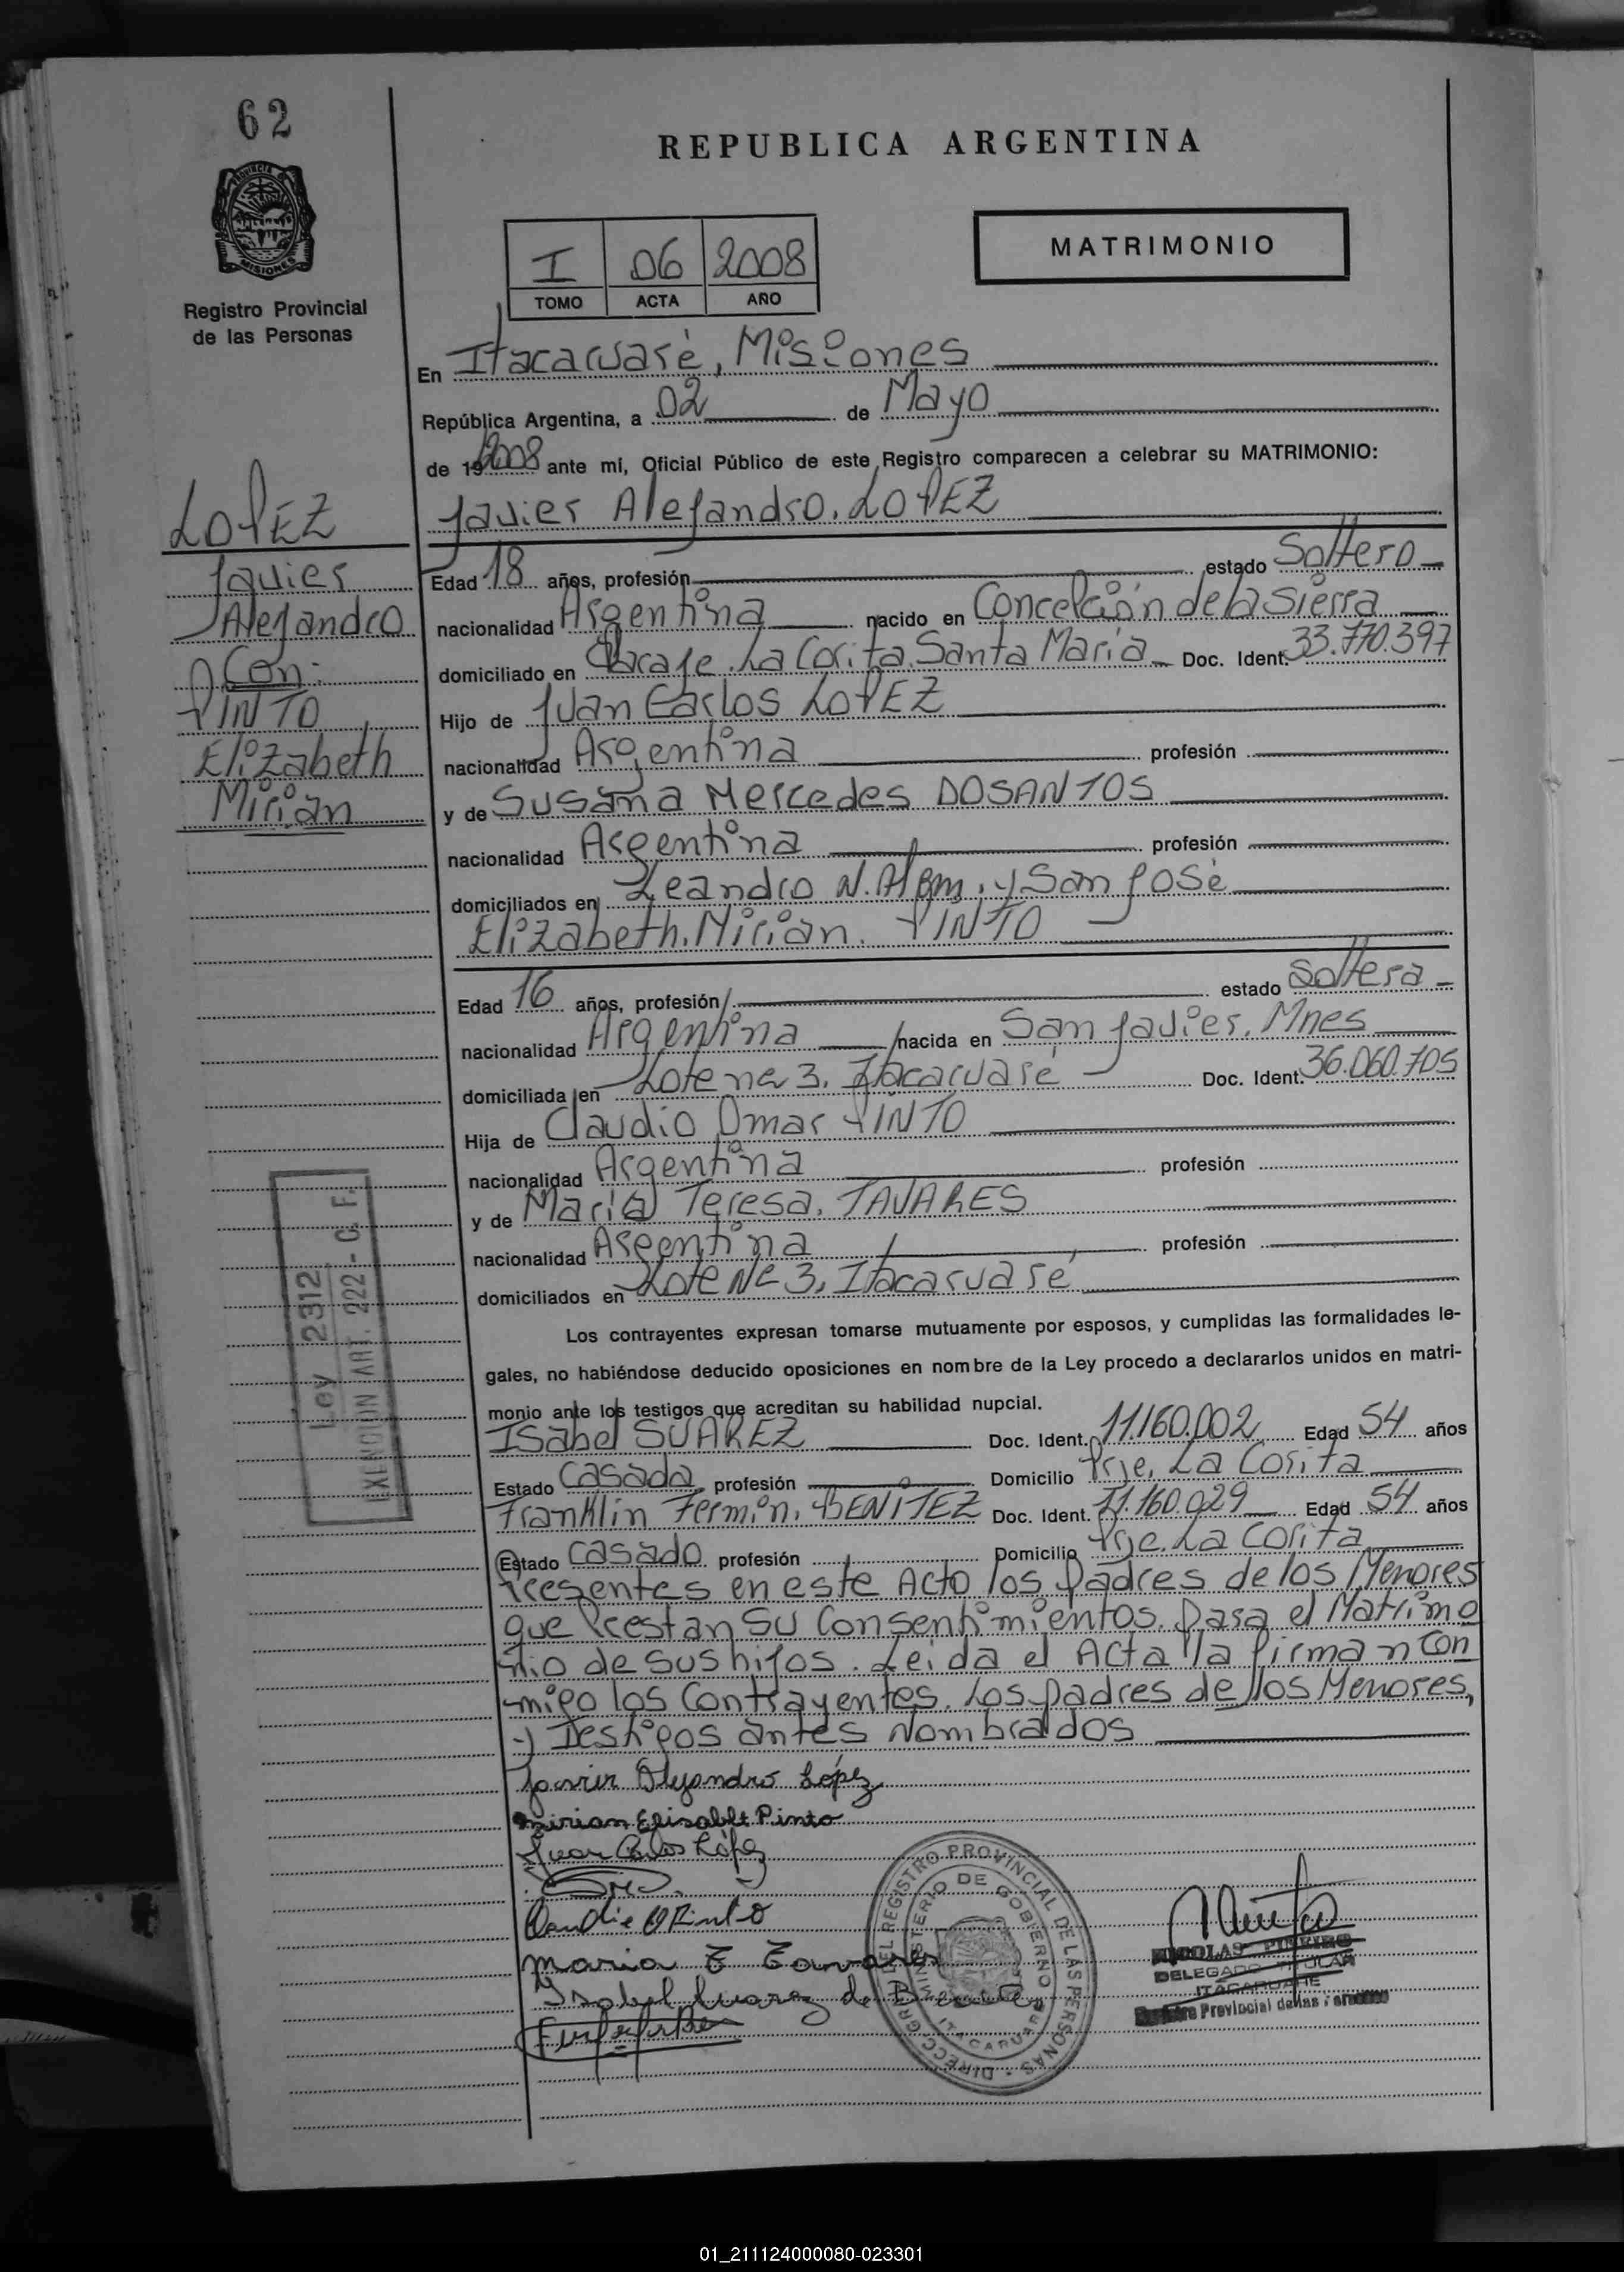 62
REPUBLICA ARGENTINA
PROVINCIA DE
MISIONES
Registro Provincial
de las Personas
I 06 2008
TOMO ACTA AÑO
MATRIMONIO
En Itacaruaré, Misiones
República Argentina, a 02 de Mayo
de 192008 ante mí, Oficial Público de este Registro comparecen a celebrar su MATRIMONIO:
LOPEZ
Javier
Alejandro
Con:
PINTO
Elizabeth
Mirian
Javier Alejandro. LOPEZ
Edad 18 años, profesión estado Soltero
nacionalidad Argentina nacido en Concelción de la Sierra
domiciliado en Paraje. La Corita. Santa María Doc. Ident. 33.770.397
Hijo de Juan Carlos LOPEZ
nacionalidad Argentina profesión
y de Susana Mercedes DOSANTOS
nacionalidad Argentina profesión
domiciliados en Leandro N. Alem. y San José
Elizabeth. Mirian. PINTO
Edad 16 años, profesión estado Soltera
nacionalidad Argentina nacida en San Javier. Mnes
domiciliada en Lote Nº 3. Itacaruaré Doc. Ident. 36.060.705
Hija de Claudio Omar PINTO
nacionalidad Argentina profesión
y de María Teresa. TAVARES
nacionalidad Argentina profesión
domiciliados en Lote Nº 3. Itacaruaré
Los contrayentes expresan tomarse mutuamente por esposos, y cumplidas las formalidades le-
gales, no habiéndose deducido oposiciones en nombre de la Ley procedo a declararlos unidos en matri-
monio ante los testigos que acreditan su habilidad nupcial.
Isabel SUAREZ Doc. Ident. 11.160.002 Edad 54 años
Estado Casada profesión Domicilio Prje. La Corita
Franklin Fermin. BENITEZ Doc. Ident. 11.160.029 Edad 54 años
Estado Casado profesión Domicilio Prje. La Corita
Presentes en este Acto los Padres de los Menores
que Prestan Su Consentimientos. Para el Matrimo
nio de sus hijos. Leida el Acta la firman con
migo los Contrayentes. Los padres de los Menores,
y Testigos antes Nombrados
Ley 2312
EXENCION ART. 222 - C. F.
Javier Alejandro López
Mirian Elisabet Pinto
Juan Carlos López
Claudio O Pinto
Maria T Tavares
Isabel Suarez de Benitez
DIRECC. GRAL. DEL REGISTRO PROVINCIAL DE LAS PERSONAS
MINISTERIO DE GOBIERNO
ITACARUARE
NICOLAS PINEIRO
DELEGADO TITULAR
ITACARUARE
Registro Provincial de las Personas
01_211124000080-023301